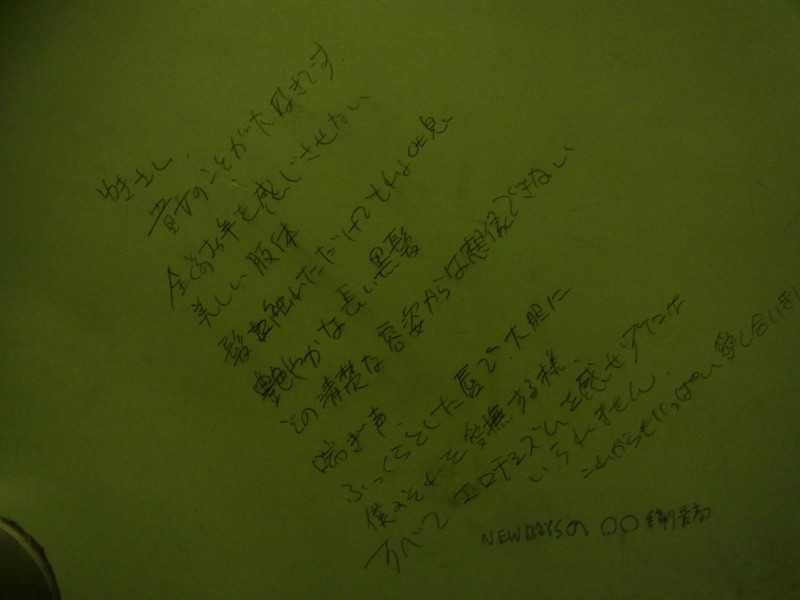 貴女のことが大好きです
全然年を感じさせない
美しい肢体
髪に触れただけでもれる吐息
艶やかな長い黒髪
その清楚な容姿からは想像できない
喘ぎ声、
ふっくらとした唇で、大胆に
僕のそれを愛撫する様、
すべて エロティズムを感ぜずには
いられません。
これからもいっぱい愛し合いましょ
NEWDAYSの 〇〇